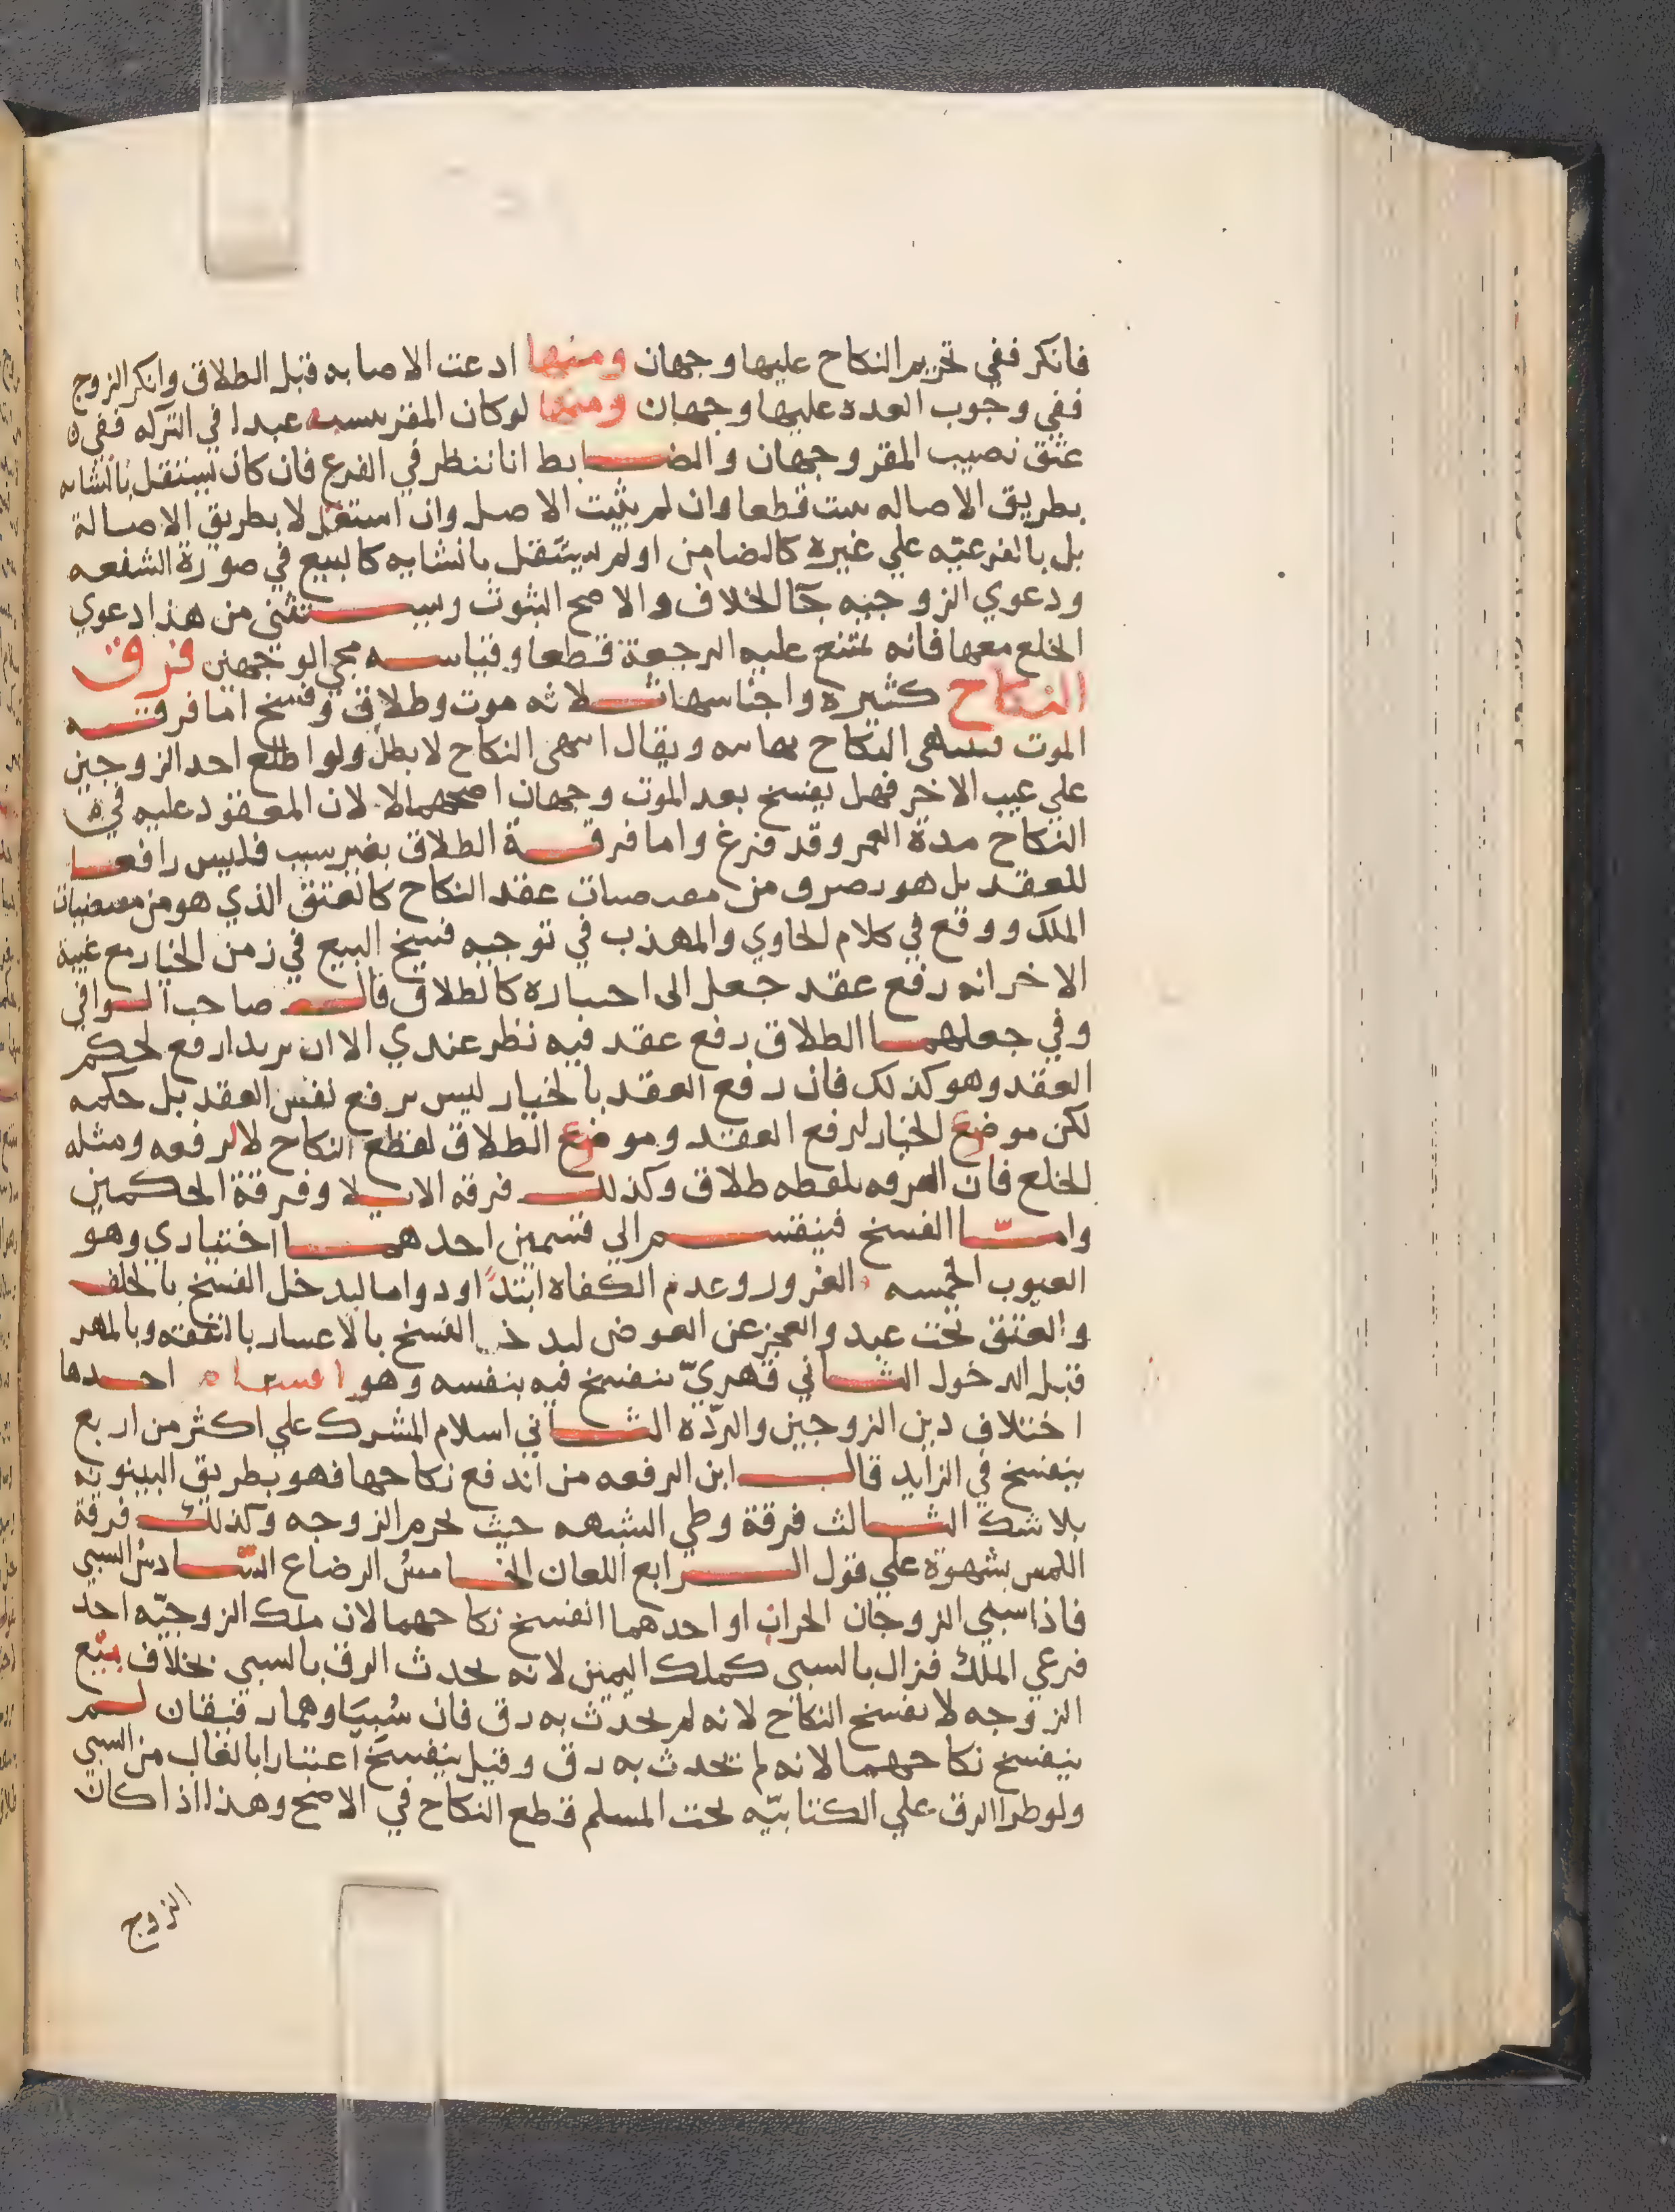 فانكر ففي تحريم النكاح عليها وجهان ومنها ادعت الاصابه قبل الطلاق وانكر الزوج
ففي وجوب العده عليها وجهان ومنها لو كان المقر بنسبه عبدا في التركه ففي
عتق نصيب المقر وجهان والضابط انا ننظر في الفرع فان كان يستقل بانشايه
بطريق الاصاله ثبت قطعا وان لم يثبت الاصل وان استقل لا بطريق الاصالة
بل بالفرعيّه علي غيره كالضامن او لم يستقل بانشايه كالبيع في صورة الشفعه
ودعوي الزوجيه جآ الخلاف والاصح الثبوت ويستثني من هذا دعوي
الخلع معها فانه تمتنع عليه الرجعة قطعا وقياسه مجي الوجهين فرق
النكاح كثيره واجناسها ثلاثه موت وطلاق وفسخ اما فرقته
الموت النكاح ويقال انتهى النكاح لا بطل ولو اطلع احد الزوجين
علي عيب الاخر فهل يفسخ بعد الموت وجهان اصحهما لا لان المعقود عليه في
النكاح مدة العمر وقد فرغ واما فرقة الطلاق بغير سبب فليس رافعا
للعقد بل هو تصرف من مقتضيات عقد النكاح كالعتق الذي هو من مقتضيات
الملك ووقع في كلام الحاوي والمهذب في توجيه فسخ البيع في زمن الخيار مع غيبة
الاخر انه رفع عقد جعل الى اختياره كالطلاق قال صاحب الوافي
وفي جعلهما الطلاق رفع عقد فيه نظر عندي الا ان يريدا رفع لحكم
العقد وهو كذلك فان رفع العقد بالخيار ليس يرفع نفس العقد بل حكمه
لكن موضع الخيار لرفع العقد وموضع الطلاق لقطع النكاح لا لرفعه ومثله
الخلع فان الفرقه بلفظه طلاق وكذلك فرقه الايلا وفرقة الحكمين
وامّا الفسخ فينقسم الي قسمين احدهما اختياري وهو
العيوب الخمسه الغرور وعدم الكفاه ابتدًا او دواما ليدخل الفسخ بالخلف
والعتق تحت عبد والعجز عن العوض ليدخل الفسخ بالاعسار بالنفقه وبالمهر
قبل الدخول الثاني قهريّ ينفسخ فيه بنفسه وهو اقسام احدها
اختلاف دين الزوجين والردّه الثاني اسلام المشرك علي اكثر من اربع
ينفسخ في الزايد قال ابن الرفعه من اندفع نكاحها فهو بطريق البينونه
بلا شك الثالث فرقة وطي الشبهه حيث يحرم الزوجه وكذلك فرقة
اللمس بشهوة علي قول الرابع اللعان الخامسُ الرضاع السّادسُ السبي
فاذا سبي الزوجان الحران او احدهما انفسخ نكاحهما لان ملك الزوجيّه احد
فرعي الملك فزال بالسبي كملك اليمين لانه يحدث الرق بالسبي بخلاف بيع
الزوجه لا يفسخ النكاح لانه لم يحدث به رق فان سُبِيَا وهما رقيقان لم
ينفسخ نكاحهما لانه لم يحدث به رق وقيل ينفسخ اعتبارا بالغالب من السبي
ولو طرا الرق علي الكتابيّه تحت المسلم قطع النكاح في الاصح وهذا اذا كان
الزوج